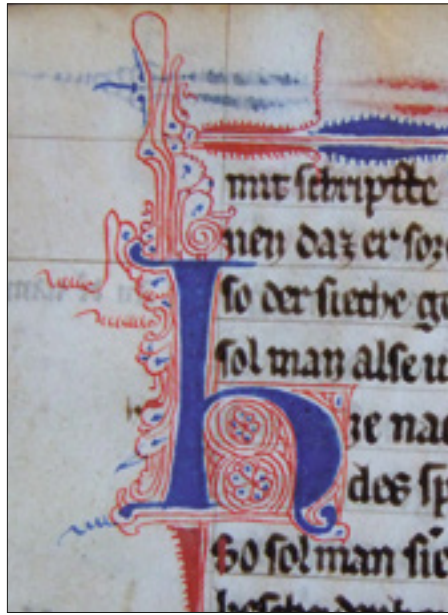 mit schripfte
nen daz er soz
so der sieche ge
sol man alse u
h
ze na
des sp
So sol man sie